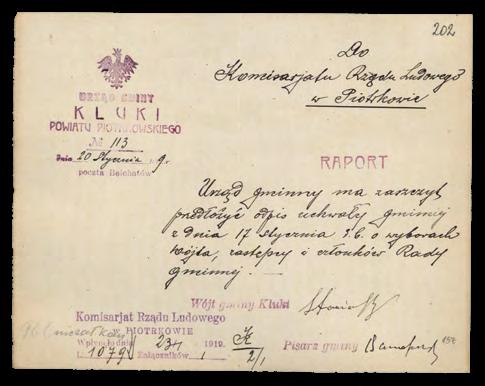 202
Do
Komisarjatu Rządu Ludowego
w Piotrkowie
URZĄD GMINY
KLUKI
POWIATU PIOTRKOWSKIEGO
№ 113
dnia 20 Stycznia 19 9 r.
poczta Bełchatów
RAPORT
Urząd gminny ma zaszczyt
przedłożyć odpis uchwały gminnej
z dnia 17 stycznia r.b. o wyborach
wójta, zastępcy i członków Rady
gminnej.
Wójt gminy Kluki
Komisarjat Rządu Ludowego
w PIOTRKOWIE
Wpłynęło dnia 23/I 1919.
L. 1079 Załączników 1
K
2/1
Pisarz gminy